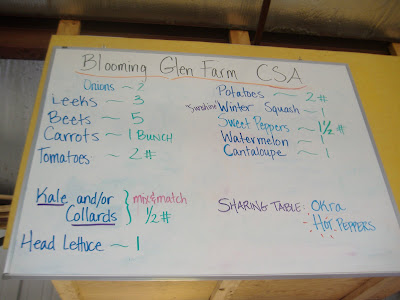 Blooming Glen Farm CSA
Onions ~ 2
Leeks ~ 3
Beets ~ 5
Carrots ~ 1 Bunch
Tomatoes ~ 2#
Kale and/or
Collards
mix & match
1/2#
Head Lettuce ~ 1
Potatoes ~ 2#
"Sunshine" Winter Squash ~ 1
Sweet Peppers ~ 1 1/2#
Watermelon ~ 1
Cantaloupe ~ 1
Sharing Table: Okra
Hot Peppers